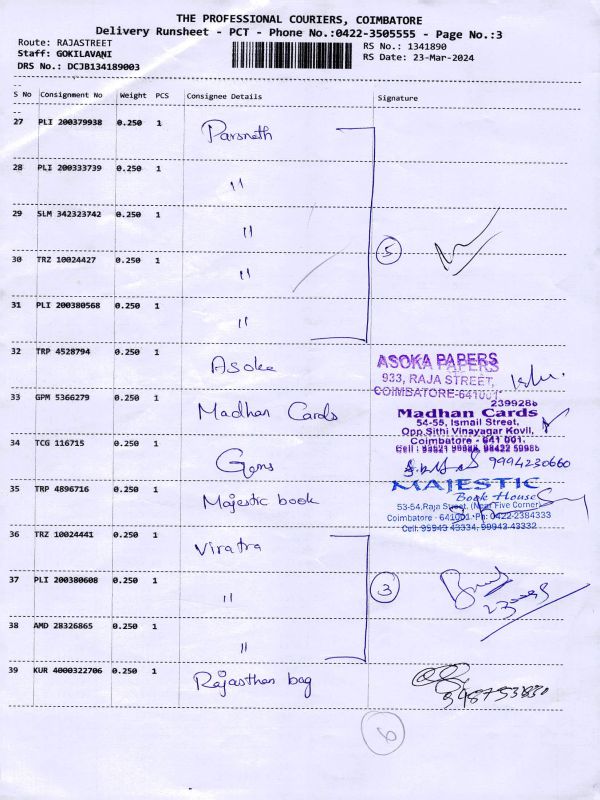 THE PROFESSIONAL COURIERS, COIMBATORE
Delivery Runsheet - PCT - Phone No.:0422-3505555 - Page No.:3
Route: RAJASTREET
RS No.: 1341890
Staff: GOKILAVANI
RS Date: 23-Mar-2024
DRS No.: DCJB134189003
S No Consignment No Weight PCS Consignee Details Signature
27 PLI 200379938 0.250 1 Parsneth
28 PLI 200333739 0.250 1 "
29 SLM 342323742 0.250 1 "
30 TRZ 10024427 0.250 1 "
5
31 PLI 200380568 0.250 1 "
32 TRP 4528794 0.250 1 Asoka
ASOKA PAPERS
933, RAJA STREET,
COIMBATORE-641001.
33 GPM 5366279 0.250 1 Madhan Cards
2399286
Madhan Cards
54-55, Ismail Street,
Opp.Sithi Vinayagar Kovil,
Coimbatore - 641 001.
34 TCG 116715 0.250 1 Gems
9994230660
35 TRP 4896716 0.250 1 Majestic book
MAJESTIC
Book House
53-54,Raja Street, (Near Five Corner)
Coimbatore - 641001. Ph: 0422-2384333
Cell: 99943 43334, 99943 43332
36 TRZ 10024441 0.250 1 Viratra
37 PLI 200380608 0.250 1 "
3
38 AMD 28326865 0.250 1 "
39 KUR 4000322706 0.250 1 Rajasthan bag
6